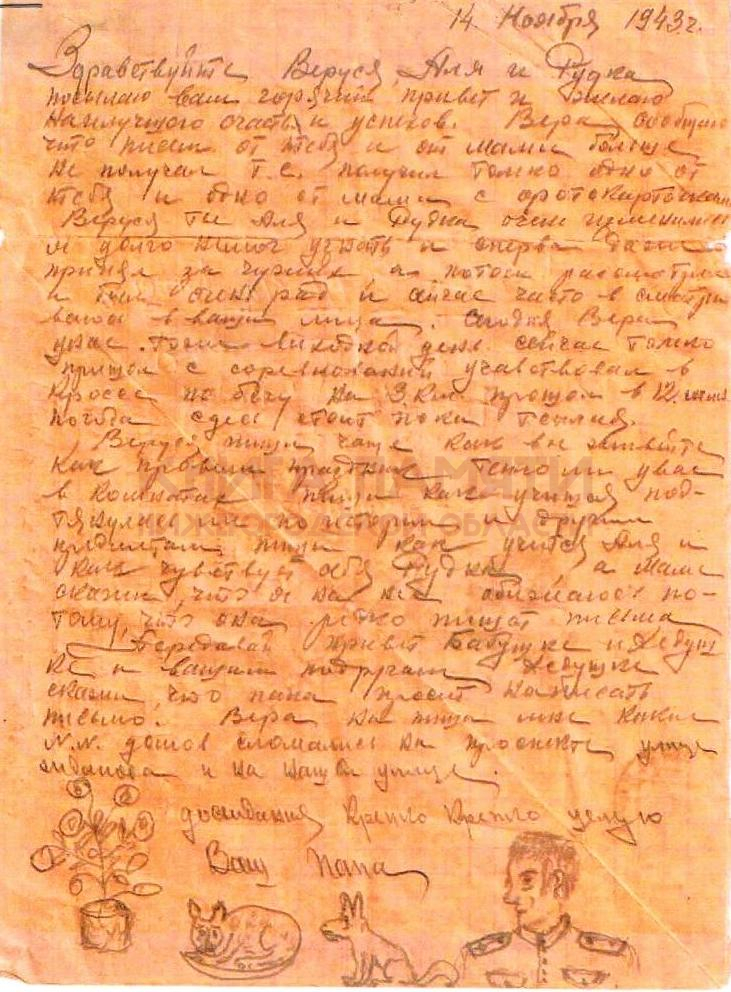 14 Ноября 1943 г.
Здравствуйте Веруся, Аля и Рудка
посылаю вам горячий привет и желаю
наилучшого счастья и успехов. Вера сообщаю
что писем от тебя и от мамы больше
не получал т.е. получил только одно от
тебя и одно от мамы с фотокарточками
Веруся ты Аля и Рудка очень изменились
я долго не мог узнать и сперва даже
принял за чужих а потом рассмотрел
и был очень рад и сичас часто
в ваши лица. сегодня Вера
у нас выходной день. сейчас только
пришол с соревнований учавствовал в
кроссе по бегу на 3 км. прошол в 12. мин
погода сдесь стоит пока теплая.
Веруся пиши чаще как вы живете
как провели праздник тепло ли у вас
в комнатах пиши как учишся под-
тянулась ли по истории и другим
предметам пиши как учится Аля и
как чувствует себя Рудка, а маме
скажи, что я на нее обижаюсь по-
тому, что она редко пишет письма
Передавай привет Бабушке и Дедуш
ке и вашим подругам Дедушке
скажи, что папа просит написать
письмо. Вера напиши мне какие
N.N. домов сломались на проспекте улице
и на нашей улице.
досвидания крепко крепко целую
Ваш Папа
КНИГА ПАМЯТИ
НИЖЕГОРОДСКОЙ ОБЛАСТИ